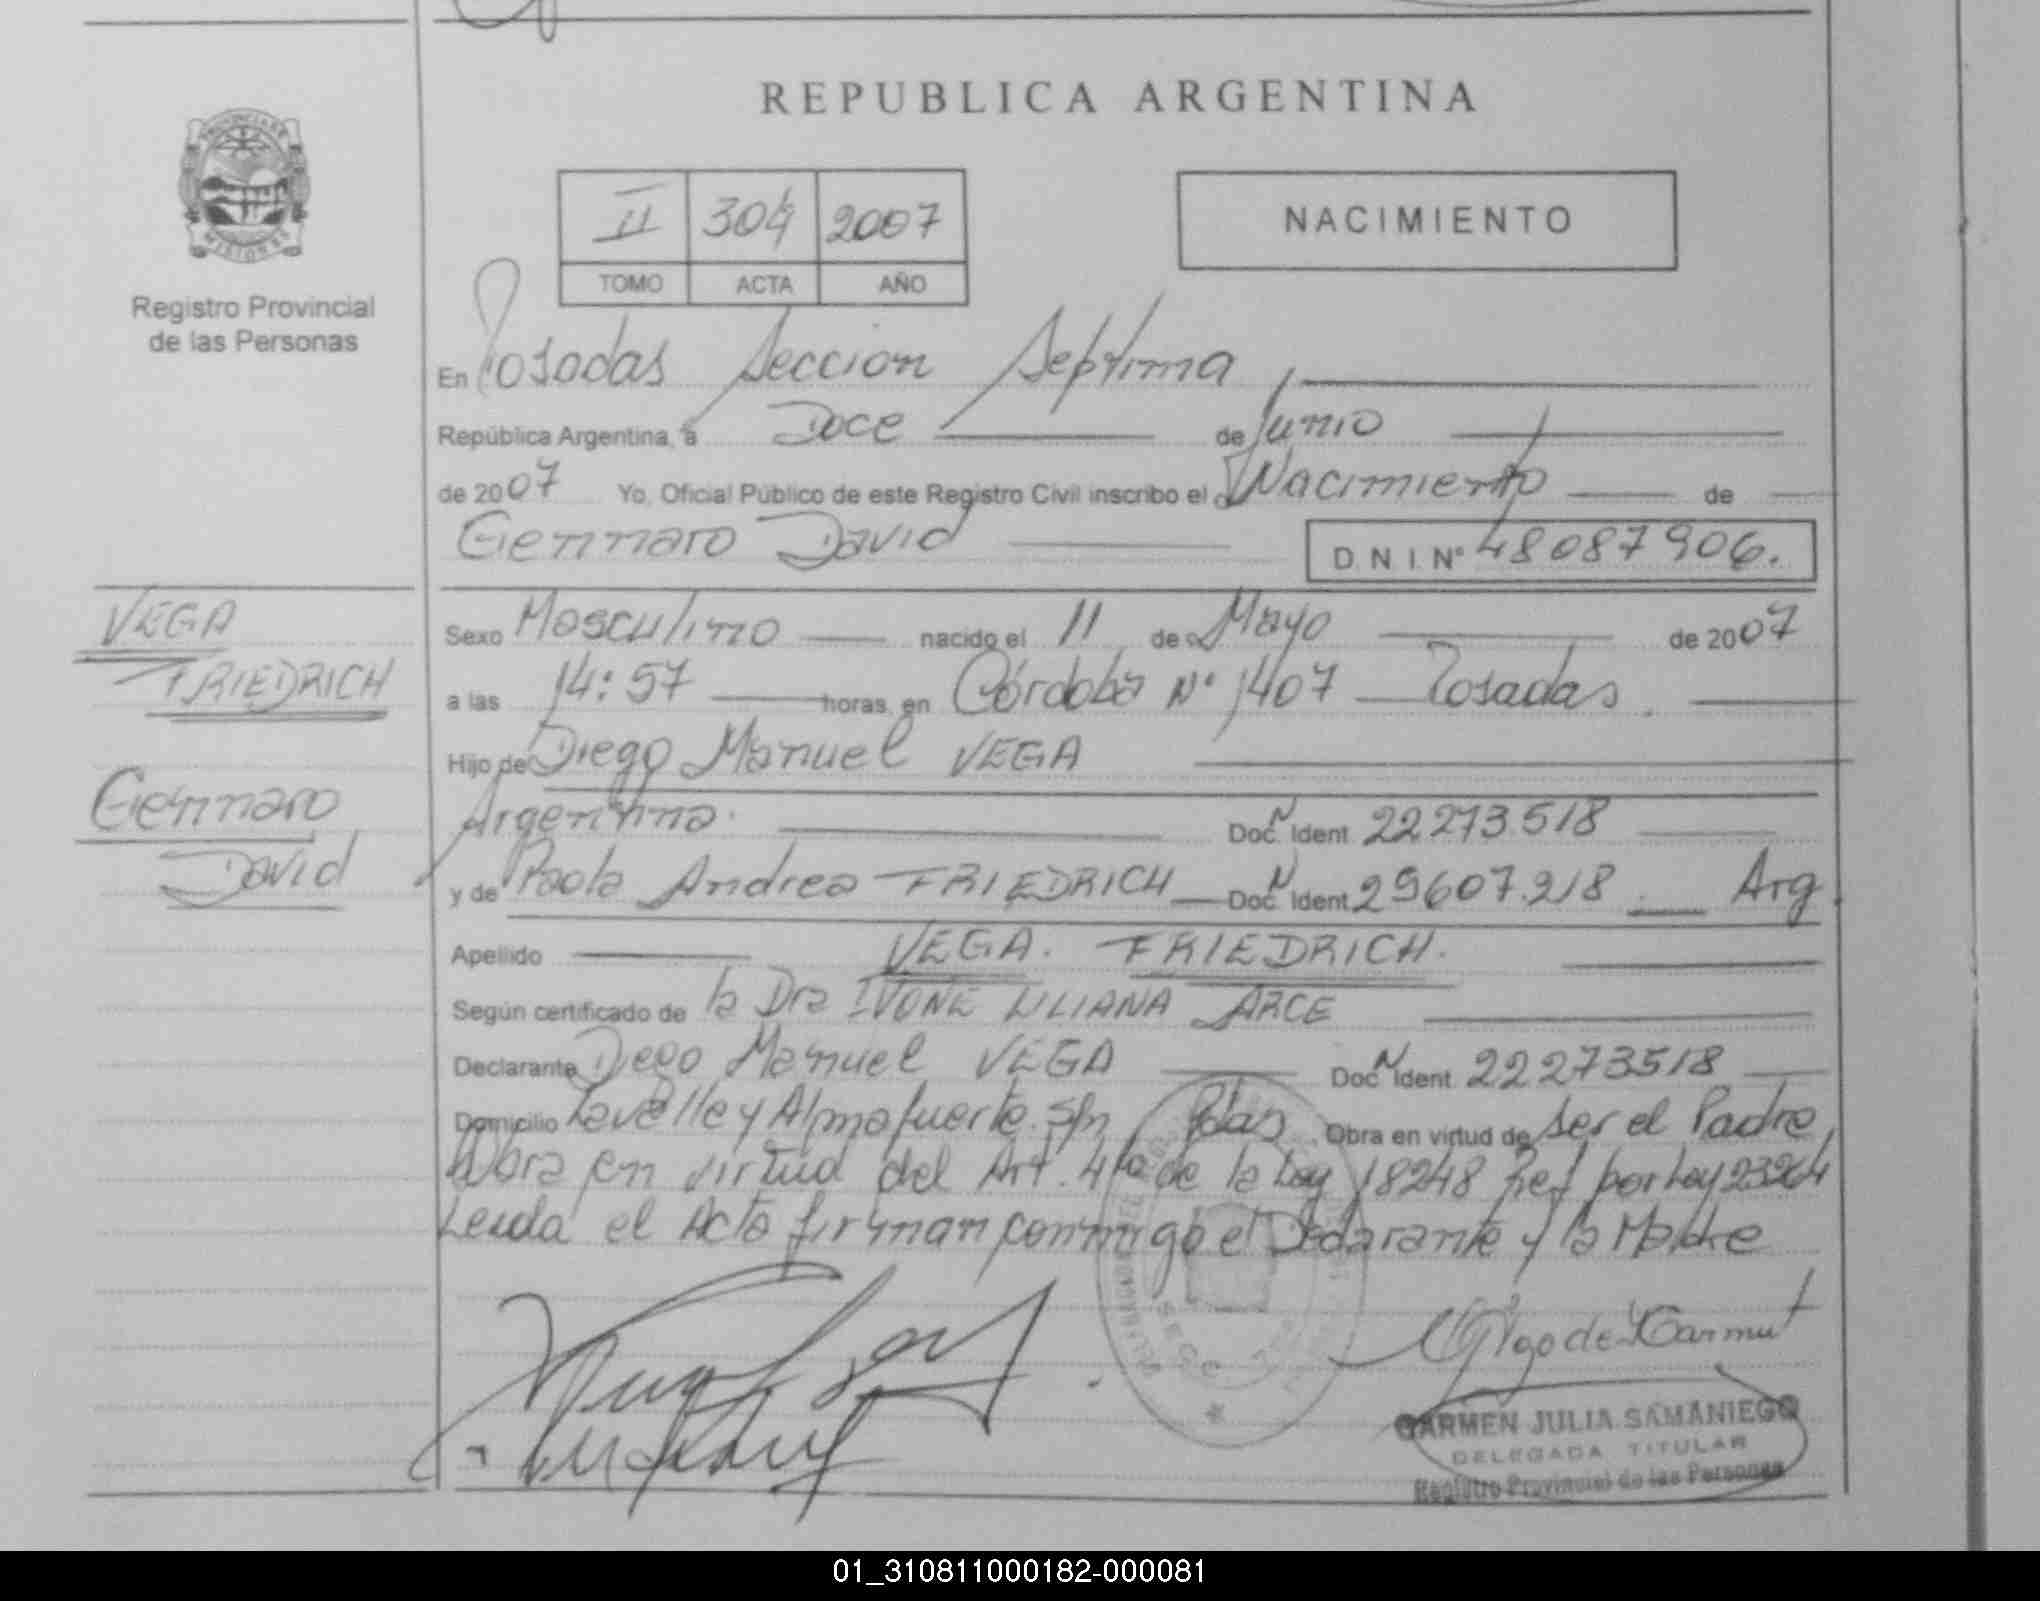 REPUBLICA ARGENTINA
PROVINCIA DE
MISIONES
Registro Provincial
de las Personas
II 304 2007
TOMO ACTA AÑO
NACIMIENTO
En Posadas Seccion Septima
República Argentina, a Doce de Junio
de 2007 Yo, Oficial Público de este Registro Civil inscribo el Nacimiento de
Gennaro David
D.N.I.Nº 48087906.
VEGA
FRIEDRICH
Gennaro
David
Sexo Masculino nacido el 11 de Mayo de 2007
a las 14:57 horas, en Córdoba Nº 1407 Posadas.
Hijo de Diego Manuel VEGA
Argentina. Doc. Ident. 22273518
y de Paola Andrea FRIEDRICH Doc. Ident. 29607.218 Arg.
Apellido VEGA. FRIEDRICH.
Según certificado de la Dra IVONE LILIANA ARCE
Declarante Diego Manuel VEGA Doc. Ident. 22273518
Domicilio Lavalle y Almafuerte. S/n Pdas Obra en virtud de ser el Padre
Obra en virtud del Art. 4to de la Ley 18248 Ref por Ley 23264
Leida el Acta firman conmigo el Declarante y la Madre
CARMEN JULIA SAMANIEGO
DELEGADA TITULAR
Registro Provincial de las Personas
01_310811000182-000081